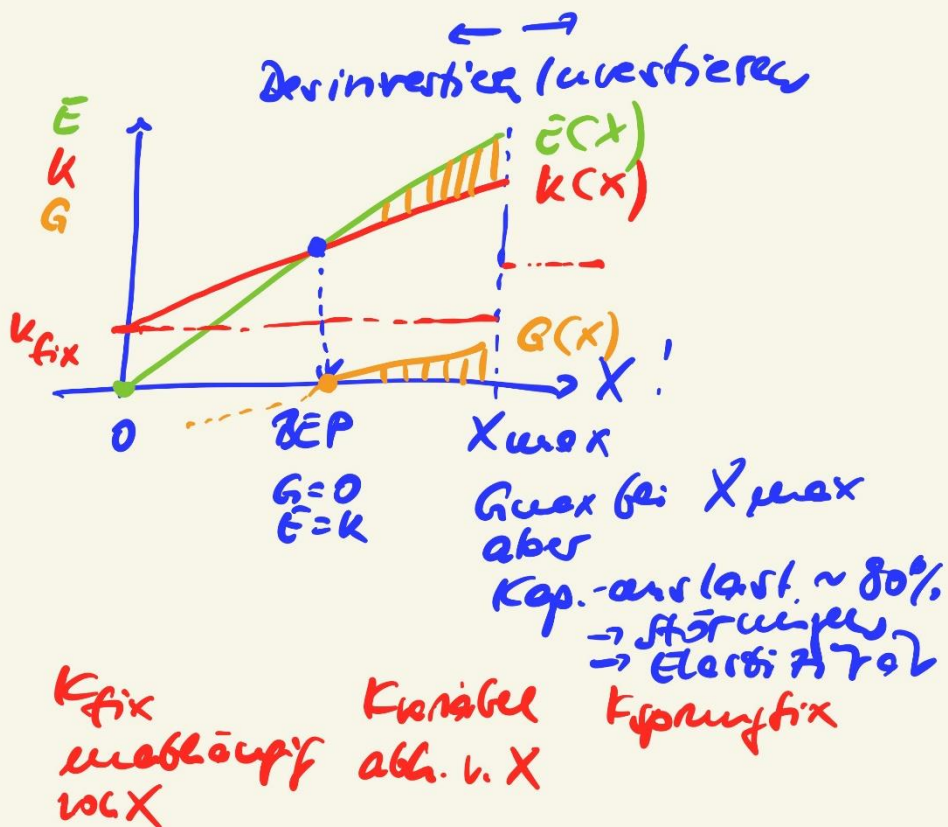 ← →
Desinvestieren / Investieren
E
K
G
E(X)
K(X)
K fix
G(X)
X !
0
BEP
X max
G=0
E=K
Gmax bei X max
aber
Kap.-auslast. ~ 80%
→ Störungen
→ Elastizität
K fix
unabhängig
von X
K variabel
abh. v. X
K sprungfix